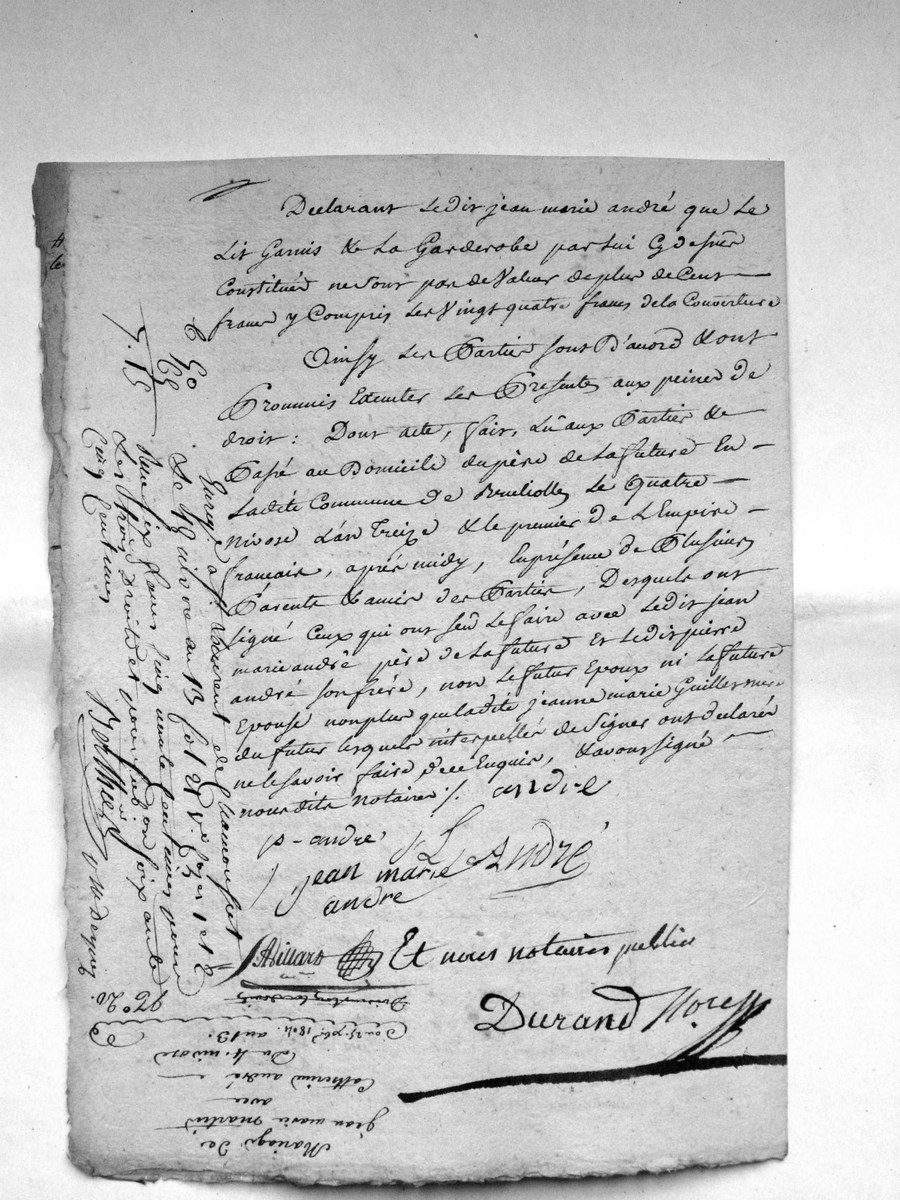 Declarant Ledit jean marie andré que Le
Lit Garnis & La Garderobe par Lui Cy dessus
Constitués ne sont pas de Valeur de plus de Cent
francs y Compris Les Vingt quatre francs de la Couverture
Ainsy Les Parties sont D'acord & ont
Promis Executer Les Presentes aux peines de
droit : Dont acte, fait, Lû aux Parties &
Passé au Domicile du père de La future En
Ladite Commune de Brulliolles Le quatre
nivose L'an Treize & le premier de L'Empire
francais, après midy, En présence de Plusieurs
Parents & amis des Parties, Desquels ont
signé Ceux qui ont seu Le faire avec Ledit jean
marie andré père de La future Et Ledit pierre
andré son frére, non Le futur Epoux ni La future
Epouse non plus que Ladite jeanne marie Guillerme
du futur Lesquels interpellés de Signer ont declarés
ne le savoir faire De ce Enquis, & avons signé
nous dits notaires /. andre
p - andre
jean marie André
andre
Et nous notaires publics
Durand Nore
Enregé à St Laurent de Chamousset
Le 18 nivose an 13 fol
Reçu six francs cinquante centimes pour
Les trois Droits et pour subon soixante
Cinq Centimes
6 50
65
7 15
Mariage de
jean marie martin
avec
Catherine andré
Du 4. nivose
an 13.
Du 25. xbre 1804.